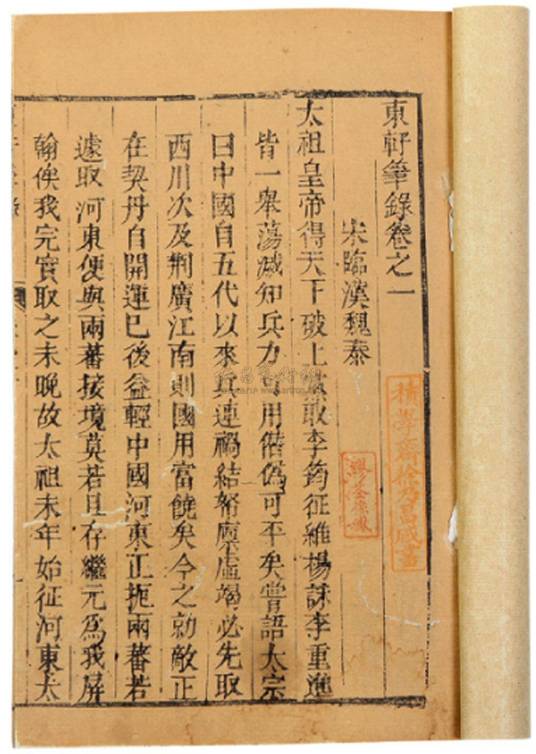 東軒筆錄卷之一
宋臨漢魏泰
太祖皇帝得天下破上黨取李筠征維楊誅李重進
皆一舉蕩滅知兵力可用僭偽可平矣嘗語太宗
曰中國自五代以來兵連禍結帑廩虛竭必先取
西川次及荆廣江南則國用富饒矣今之勍敵正
在契丹自開運已後益輕中國河東正扼兩蕃若
遽取河東便與兩蕃接境莫若且存繼元為我屏
翰俟我完實取之未晚故太祖末年始征河東太
積學齋徐乃昌藏書